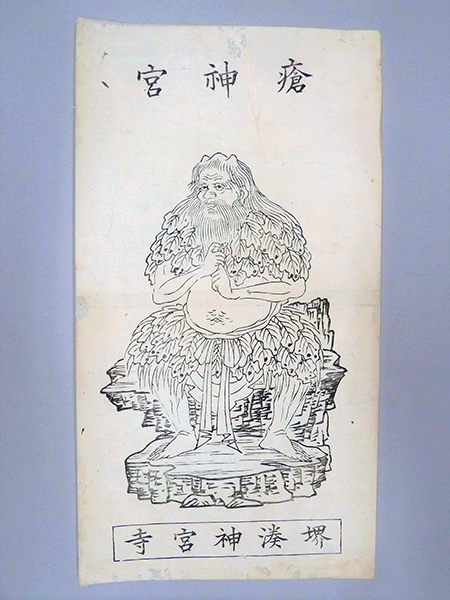 瘡神宮
堺湊神宮寺